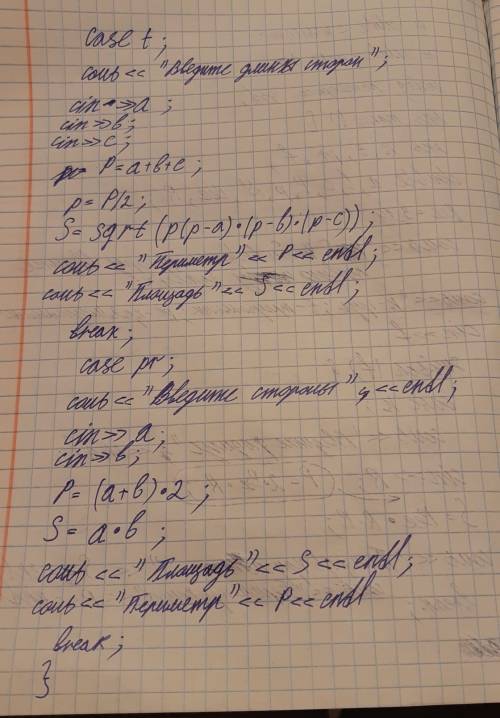 case t;
cout << "Введите длины сторон";
cin >> a;
cin >> b;
cin >> c;
P = a+b+c;
p = P/2;
S = sqrt (p(p-a)·(p-b)·(p-c));
cout << "Периметр" << P << endl;
cout << "Площадь" << S << endl;
break;
case pr;
cout << "Введите стороны" << endl;
cin >> a;
cin >> b;
P = (a+b)·2;
S = a·b;
cout << "Площадь" << S << endl;
cout << "Периметр" << P << endl
break;
}